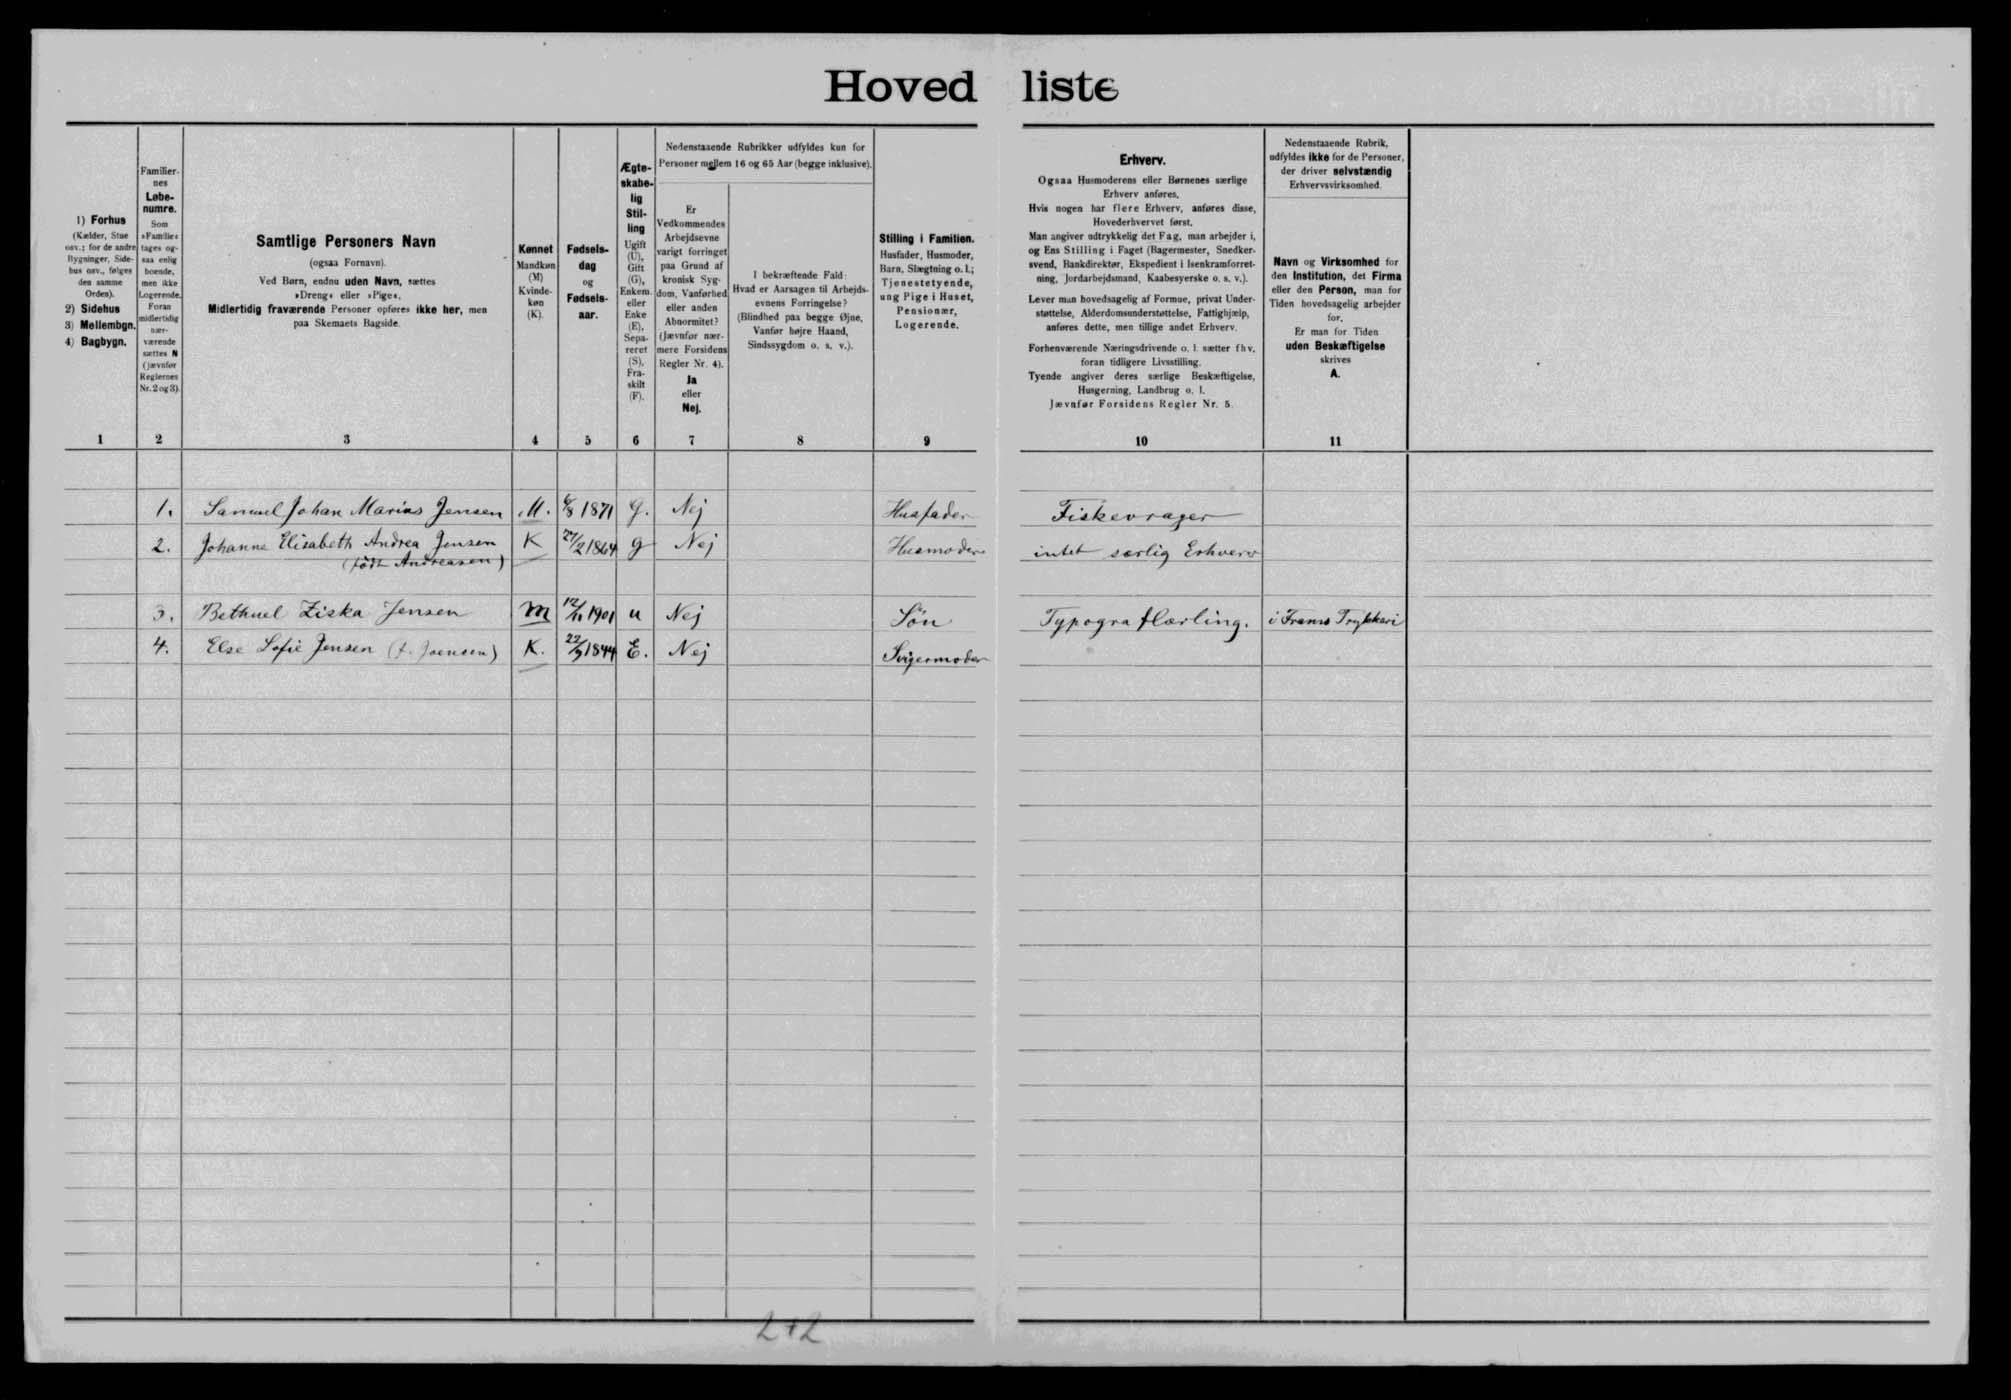 Hovedliste
1) Forhus
(Kælder, Stue
osv.; for de andre
Bygninger, Side-
hus osv., følges
den samme
Orden).
2) Sidehus
3) Mellembgn.
4) Bagbygn.
Familier-
nes
Løbe-
numre.
Som
»Familie«
tages og-
saa enlig
boende,
men ikke
Logerende.
Foran
midlertidig
nær-
værende
sættes N
(jævnfør
Reglernes
Nr. 2 og 3).
Samtlige Personers Navn
(ogsaa Fornavn).
Ved Børn, endnu uden Navn, sættes
»Dreng« eller »Pige«.
Midlertidig fraværende Personer opføres ikke her, men
paa Skemaets Bagside.
Kønnet
Mandkøn
(M)
Kvinde-
køn
(K).
Fødsels-
dag
og
Fødsels-
aar.
Ægte-
skabe-
lig
Stil-
ling
Ugift
(U),
Gift
(G),
Enkem.
eller
Enke
(E),
Sepa-
reret
(S),
Fra-
skilt
(F).
Nedenstaaende Rubrikker udfyldes kun for
Personer mellem 16 og 65 Aar (begge inklusive).
Er
Vedkommendes
Arbejdsevne
varigt forringet
paa Grund af
kronisk Syg-
dom, Vanførhed
eller anden
Abnormitet?
(Jævnfør nær-
mere Forsidens
Regler Nr. 4).
Ja
eller
Nej.
I bekræftende Fald:
Hvad er Aarsagen til Arbejds-
evnens Forringelse?
(Blindhed paa begge Øjne,
Vanfør højre Haand,
Sindssygdom o. s. v.).
Stilling i Familien.
Husfader, Husmoder,
Barn, Slægtning o. l.;
Tjenestetyende,
ung Pige i Huset,
Pensionær,
Logerende.
Erhverv.
Ogsaa Husmoderens eller Børnenes særlige
Erhverv anføres.
Hvis nogen har flere Erhverv, anføres disse,
Hovederhvervet først.
Man angiver udtrykkelig det Fag, man arbejder i,
og Ens Stilling i Faget (Bagermester, Snedker-
svend, Bankdirektør, Ekspedient i Isenkramforret-
ning, Jordarbejdsmand, Kaabesyerske o. s. v.).
Lever man hovedsagelig af Formue, privat Under-
støttelse, Alderdomsunderstøttelse, Fattighjælp,
anføres dette, men tillige andet Erhverv.
Forhenværende Næringsdrivende o. l. sætter fhv.
foran tidligere Livsstilling.
Tyende angiver deres særlige Beskæftigelse,
Husgerning, Landbrug o. l.
Jævnfør Forsidens Regler Nr. 5.
Nedenstaaende Rubrik,
udfyldes ikke for de Personer,
der driver selvstændig
Erhvervsvirksomhed.
Navn og Virksomhed for
den Institution, det Firma
eller den Person, man for
Tiden hovedsagelig arbejder
for.
Er man for Tiden
uden Beskæftigelse
skrives
A.
1 2 3 4 5 6 7 8 9 10 11
1. Samuel Johan Marius Jensen M. 6/8 1871 G. Nej Husfader Fiskevrager
2. Johanne Elisabeth Andrea Jensen K 27/2 1864 g Nej Husmoder intet særlig Erhverv
(født Andreasen)
3. Bethuel Ziska Jensen M 12/11 1901 u Nej Søn Typograflærling. i Trykkeri
4. Else Sofie Jensen (f. Joensen) K. 22/9 1844 E. Nej Svigermoder
2+2